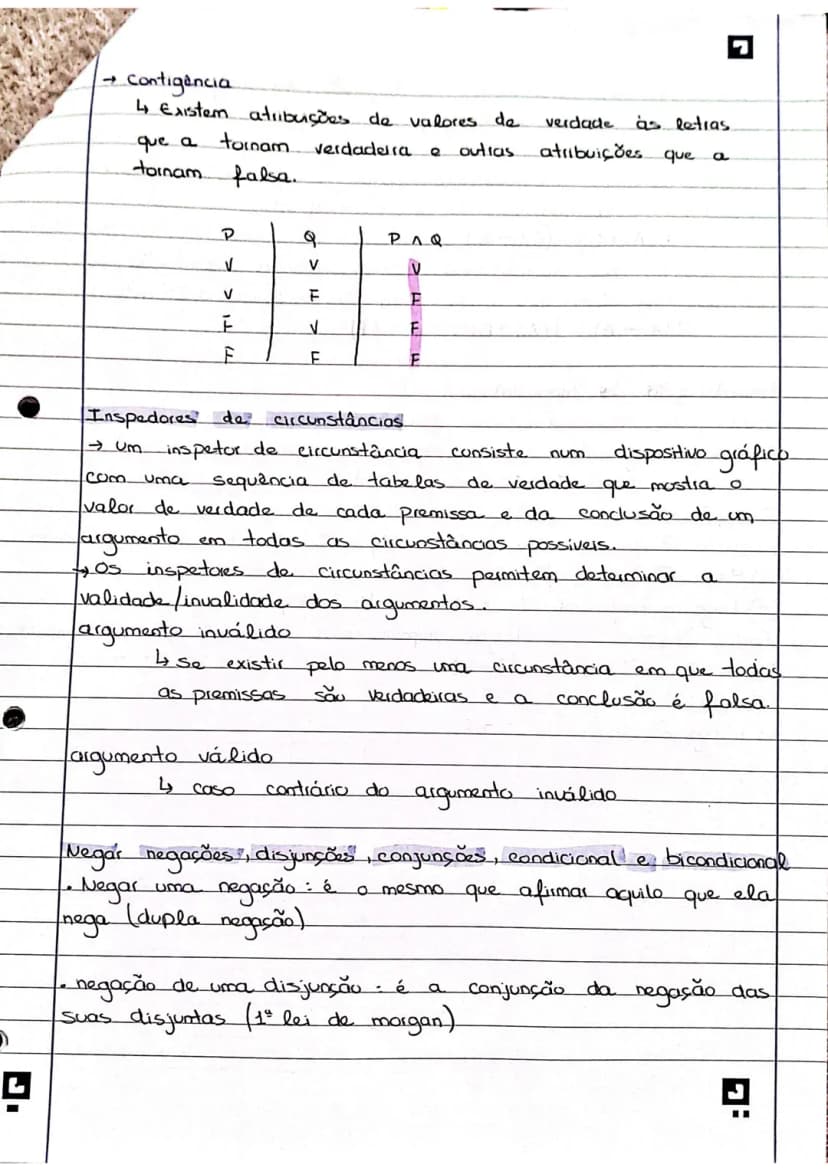 → Contigência
↳ Existem atribuições de valores de verdade às letras
que a tornam verdadeira e outras atribuições que a
tornam falsa.
P Q P ∧ Q
V V V
V F F
F V F
F F F
Inspedores de circunstâncias
→ um inspetor de circunstância consiste num dispositivo gráfico
com uma sequência de tabelas de verdade que mostra o
valor de verdade de cada premissa e da conclusão de um
argumento em todas as circunstâncias possíveis.
→ Os inspetores de circunstâncias permitem determinar a
validade/invalidade dos argumentos.
argumento inválido
↳ Se existir pelo menos uma circunstância em que todas
as premissas são verdadeiras e a conclusão é falsa.
argumento válido
↳ caso contrário do argumento inválido
Negar negações, disjunções, conjunções, condicional e bicondicional
. Negar uma negação: é o mesmo que afirmar aquilo que ela
nega (dupla negação)
. negação de uma disjunção: é a conjunção da negação das
suas disjuntas (1ª lei de morgan)